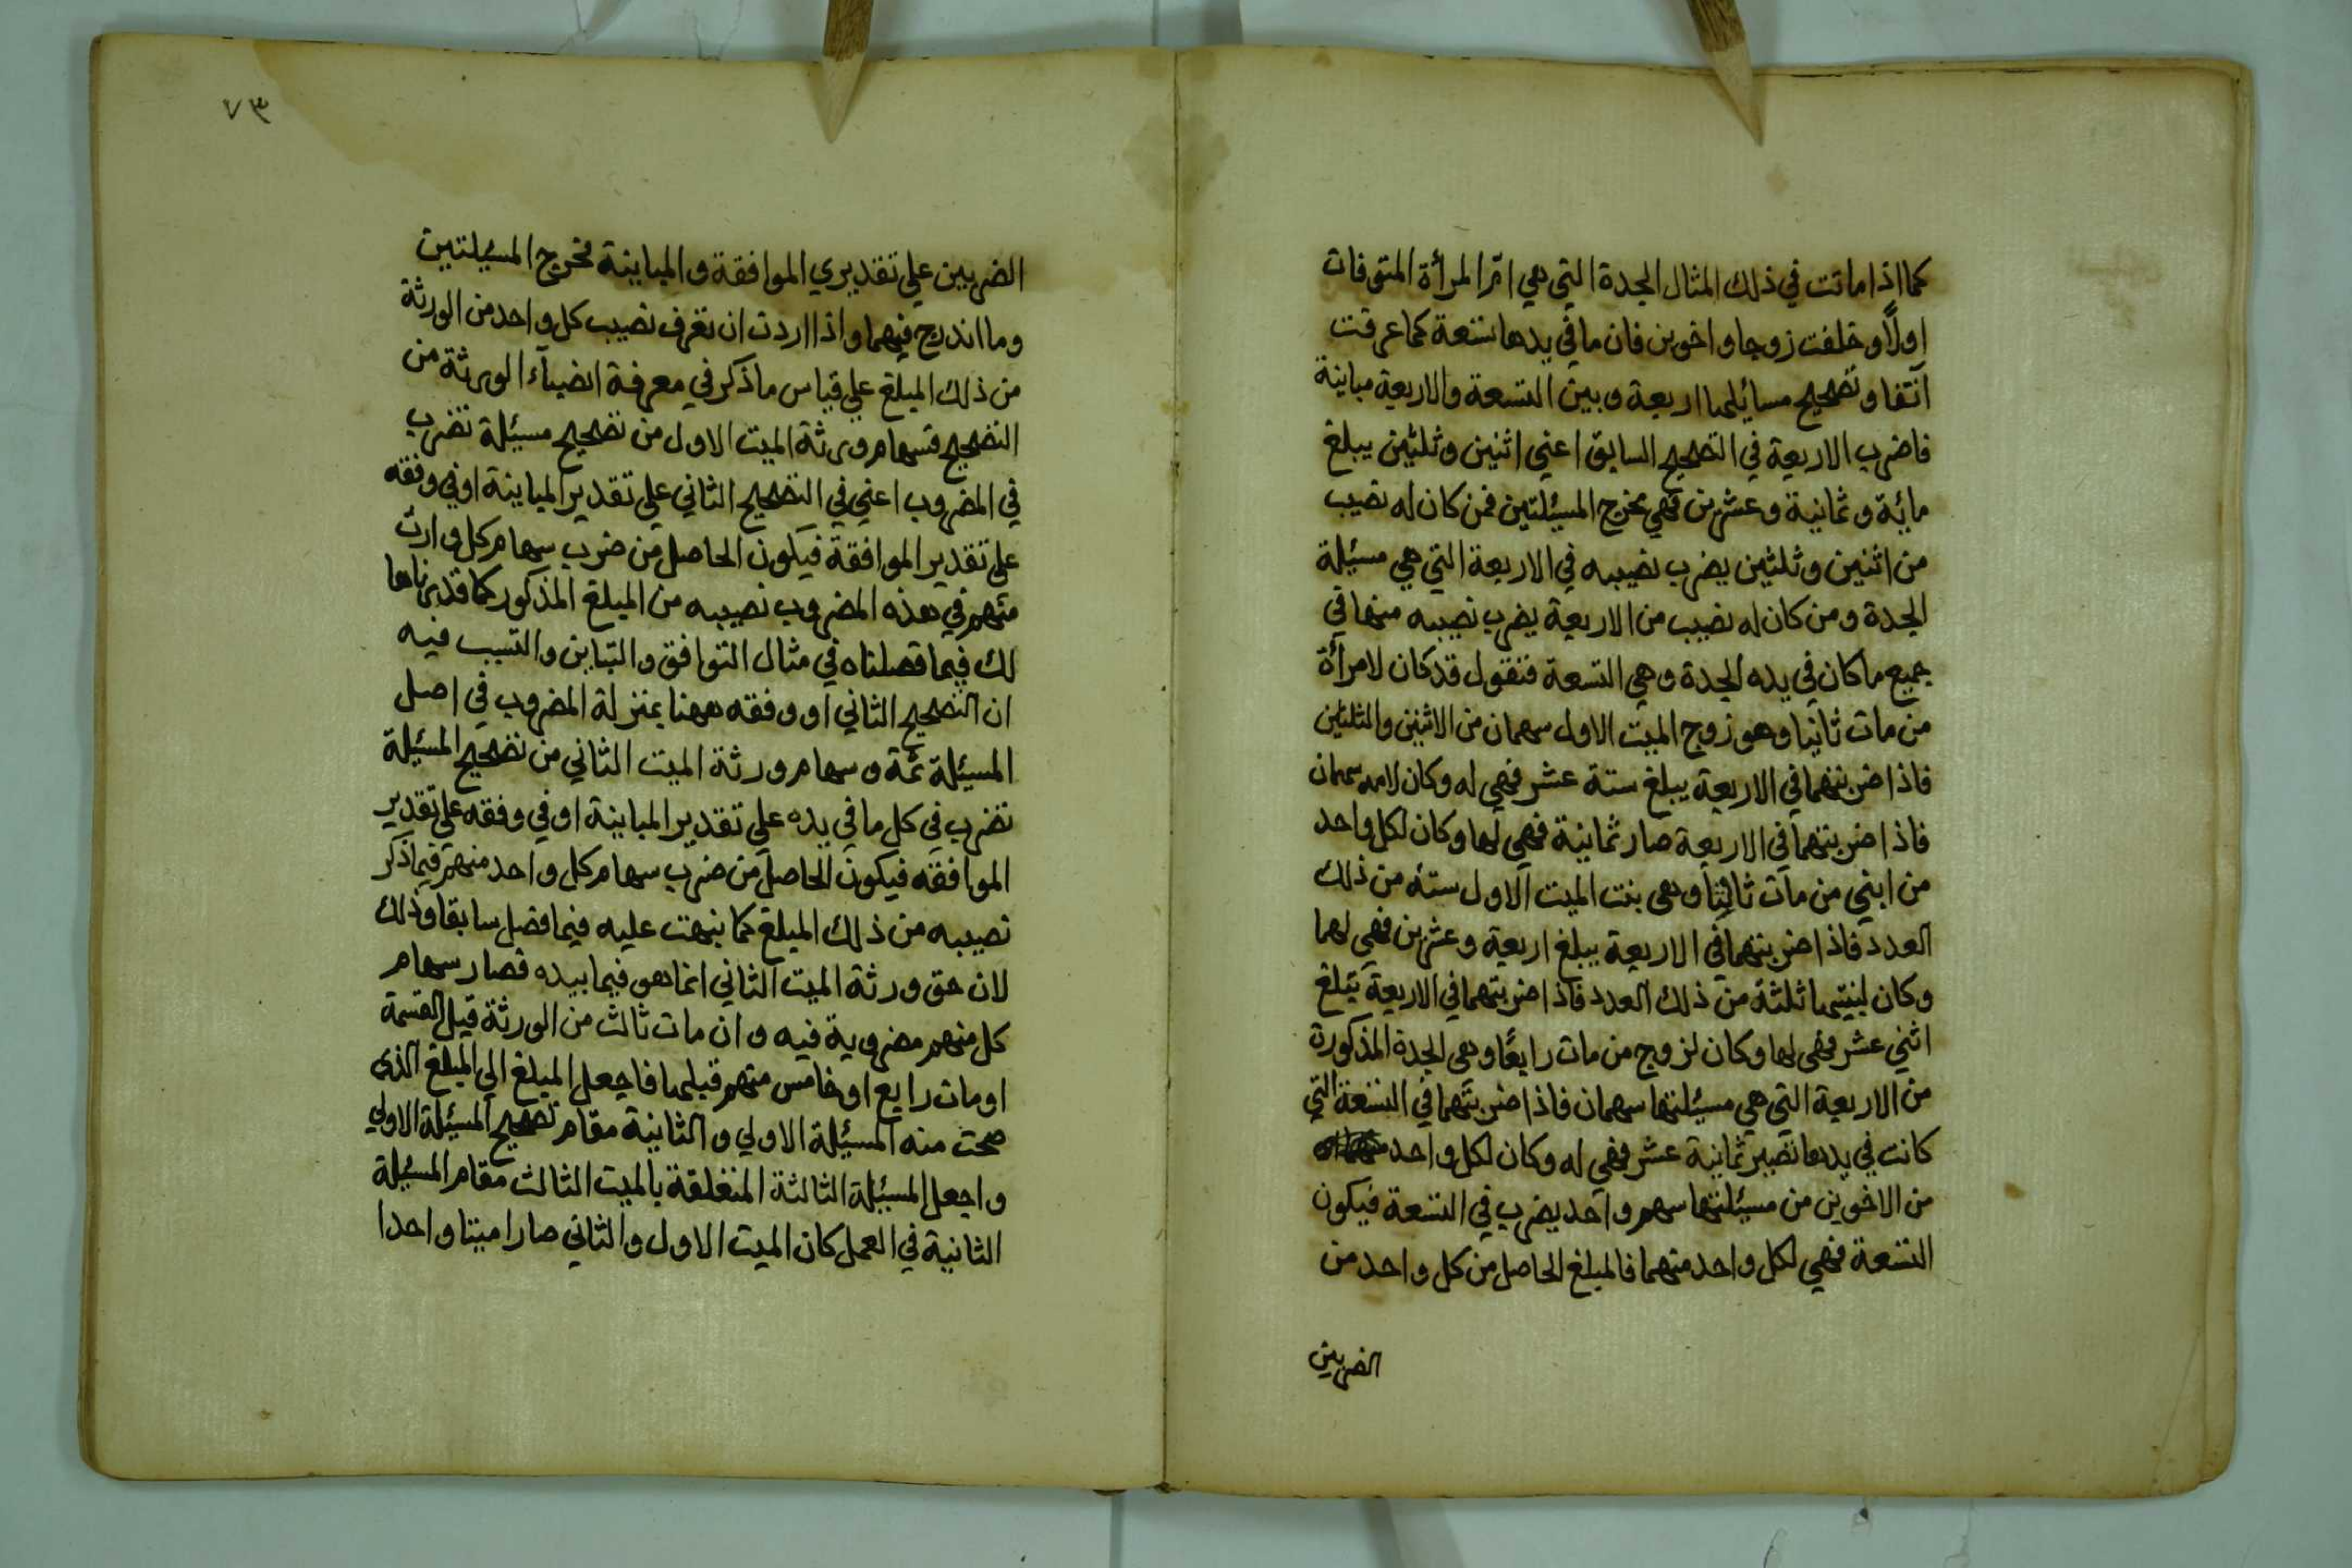 كما اذا ماتت في ذلك المثال الجدة التي هي امّ المرأة المتوفات
اولًا وخلفت زوجا واخوين فان ما في يدها تسعة كما عرفت
آنفا وتصحيح مسائلها اربعة وبين التسعة والاربعة مباينة
فاضرب الاربعة في التصحيح السابق اعني اثنين وثلثين يبلغ
مائة وثمانية وعشرين فهي مخرج المسئلتين فمن كان له نصيب
من اثنين وثلثين يضرب نصيبه في الاربعة التي هي مسئلة
الجدة ومن كان له نصيب من الاربعة يضرب نصيبه منها في
جميع ما كان في يده الجدة وهي التسعة فنقول قد كان لامرأة
من مات ثانيا وهو زوج الميت الاول سهمان من الاثنين والثلثين
فاذا ضربتهما في الاربعة يبلغ ستة عشر فهي له وكان لامه سهمان
فاذا ضربتهما في الاربعة صار ثمانية فهي لها وكان لكل واحد
من ابني من مات ثالثا وهي بنت الميت الاول ستة من ذلك
العدد فاذا ضربتهما في الاربعة يبلغ اربعة وعشرين فهي لهما
وكان لبنتها ثلثة من ذلك العدد فاذا ضربتهما في الاربعة يبلغ
اثني عشر فهي لها وكان لزوج من مات رابعًا وهي الجدة المذكورة
من الاربعة التي هي مسئلتها سهمان فاذا ضربتهما في التسعة التي
كانت في يدها تصير ثمانية عشر فهي له وكان لكل واحد
من الاخوين من مسئلتها سهم واحد يضرب في التسعة فيكون
التسعة فهي لكل واحد منهما فالمبلغ الحاصل من كل واحد من
الضربين
٧٣
الضربين علي تقديري الموافقة والمباينة مخرج المسئلتين
وما اندرج فيهما واذا اردت ان تعرف نصيب كل واحد من الورثة
من ذلك المبلغ علي قياس ما ذكر في معرفة انصباء الورثة من
التصحيح فسهام ورثة الميت الاول من تصحيح مسئلة تضرب
في المضروب اعني في التصحيح الثاني علي تقدير المباينة اوفي وفقه
علي تقدير الموافقة فيكون الحاصل من ضرب سهام كل وارث
منهم في هذه المضروب نصيبه من المبلغ المذكور كما قدرناها
لك فيما فصلناه في مثال التوافق والتباين والسبب فيه
ان التصحيح الثاني او وفقه ههنا بمنزلة المضروب في اصل
المسئلة ثمة وسهام ورثة الميت الثاني من تصحيح المسئلة
تضرب في كل ما في يده علي تقدير المباينة او في وفقه علي تقدير
الموافقه فيكون الحاصل من ضرب سهام كل واحد منهم فيما ذكر
نصيبه من ذلك المبلغ كما نبهت عليه فيما فصل سابقا وذلك
لان حق ورثة الميت الثاني انما هو فيما بيده فصار سهام
كل منهم مضروبة فيه وان مات ثالث من الورثة قبل القسمة
او مات رابع او خامس منهم قبلها فاجعل المبلغ الي المبلغ الذي
صحت منه المسئلة الاولي والثانية مقام تصحيح المسئلة الاولي
واجعل المسئلة الثالثة المتعلقة بالميت الثالث مقام المسئلة
الثانية في العمل كان الميت الاول والثاني صارا ميتا واحدا